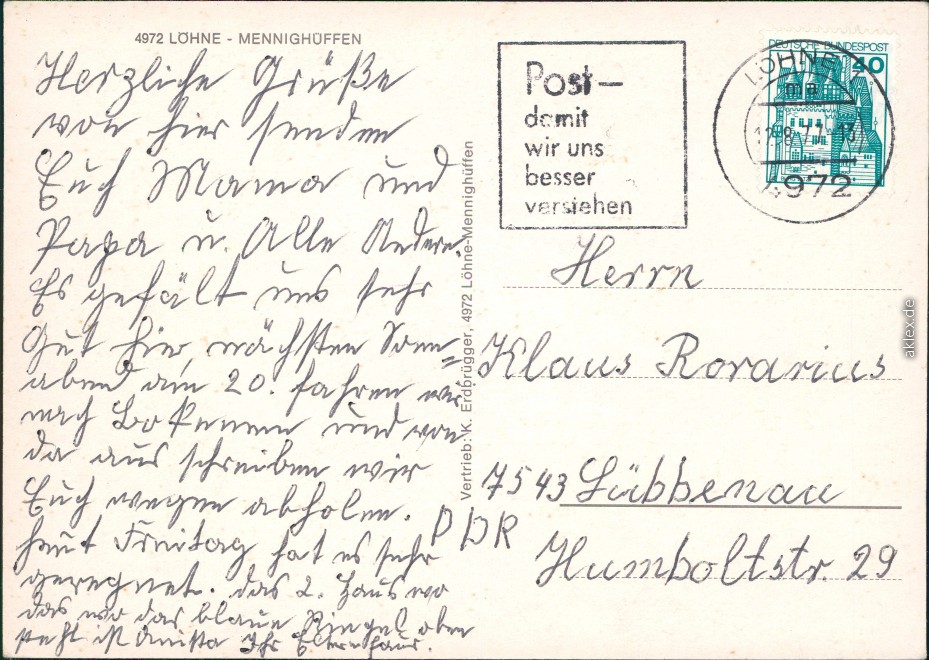 4972 LÖHNE - MENNIGHÜFFEN
Herzliche Grüße
von hier senden
Euch Mama und
Papa u. Alle Andere.
Es gefält uns sehr
Gut hier, nächsten Sonn=
abend den 20. fahren wir
nach und von
da aus schreiben wir
Euch wegen abholen.
heut Freitag hat es sehr
geregnet. das 2. Haus wo
das wo das blaue oben
steht ist Ihr Elternhaus.
Vertrieb: K. Erdbrügger, 4972 Löhne-Mennighüffen
Post—
damit
wir uns
besser
verstehen
DEUTSCHE BUNDESPOST
40
LÖHNE 1
ma
12.8.77-13
4972
Herrn
Klaus Rorarius
7543 Lübbenau
DDR
Humboltstr. 29
aklex.de